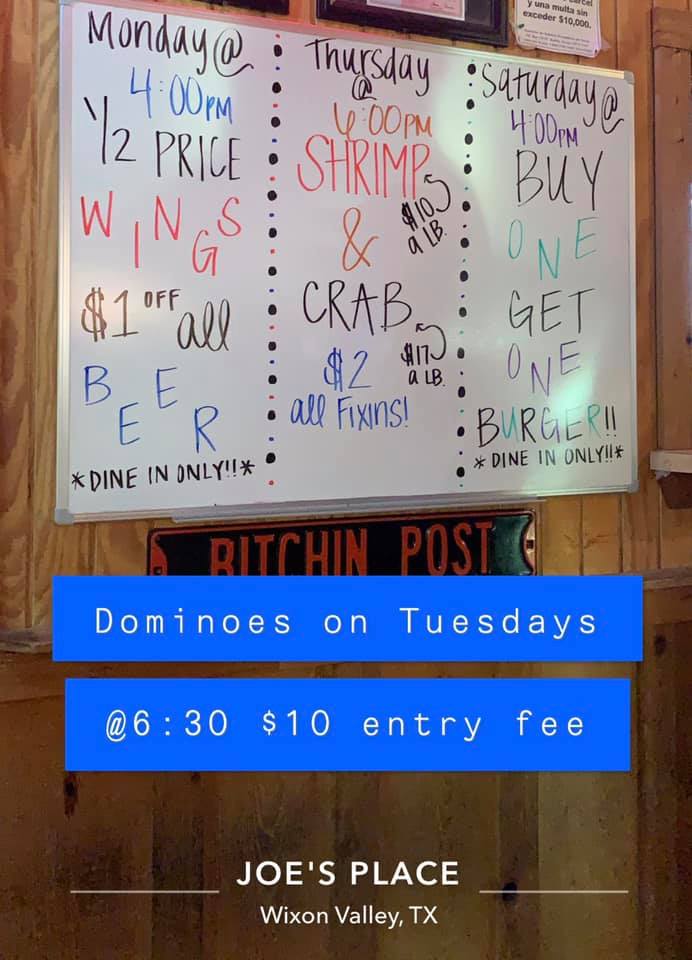 y una multa sin
exceder $10,000.
Monday @
4:00PM
1/2 PRICE
WINGS
$1 OFF all
BEER
*DINE IN ONLY!!*
Thursday
@
6:00PM
SHRIMP
$10
a LB.
&
CRAB
$17
a LB.
$2
all Fixins!
Saturday @
4:00PM
BUY
ONE
GET
ONE
BURGER!!
* DINE IN ONLY!!*
BITCHIN POST
Dominoes on Tuesdays
@6:30 $10 entry fee
JOE'S PLACE
Wixon Valley, TX